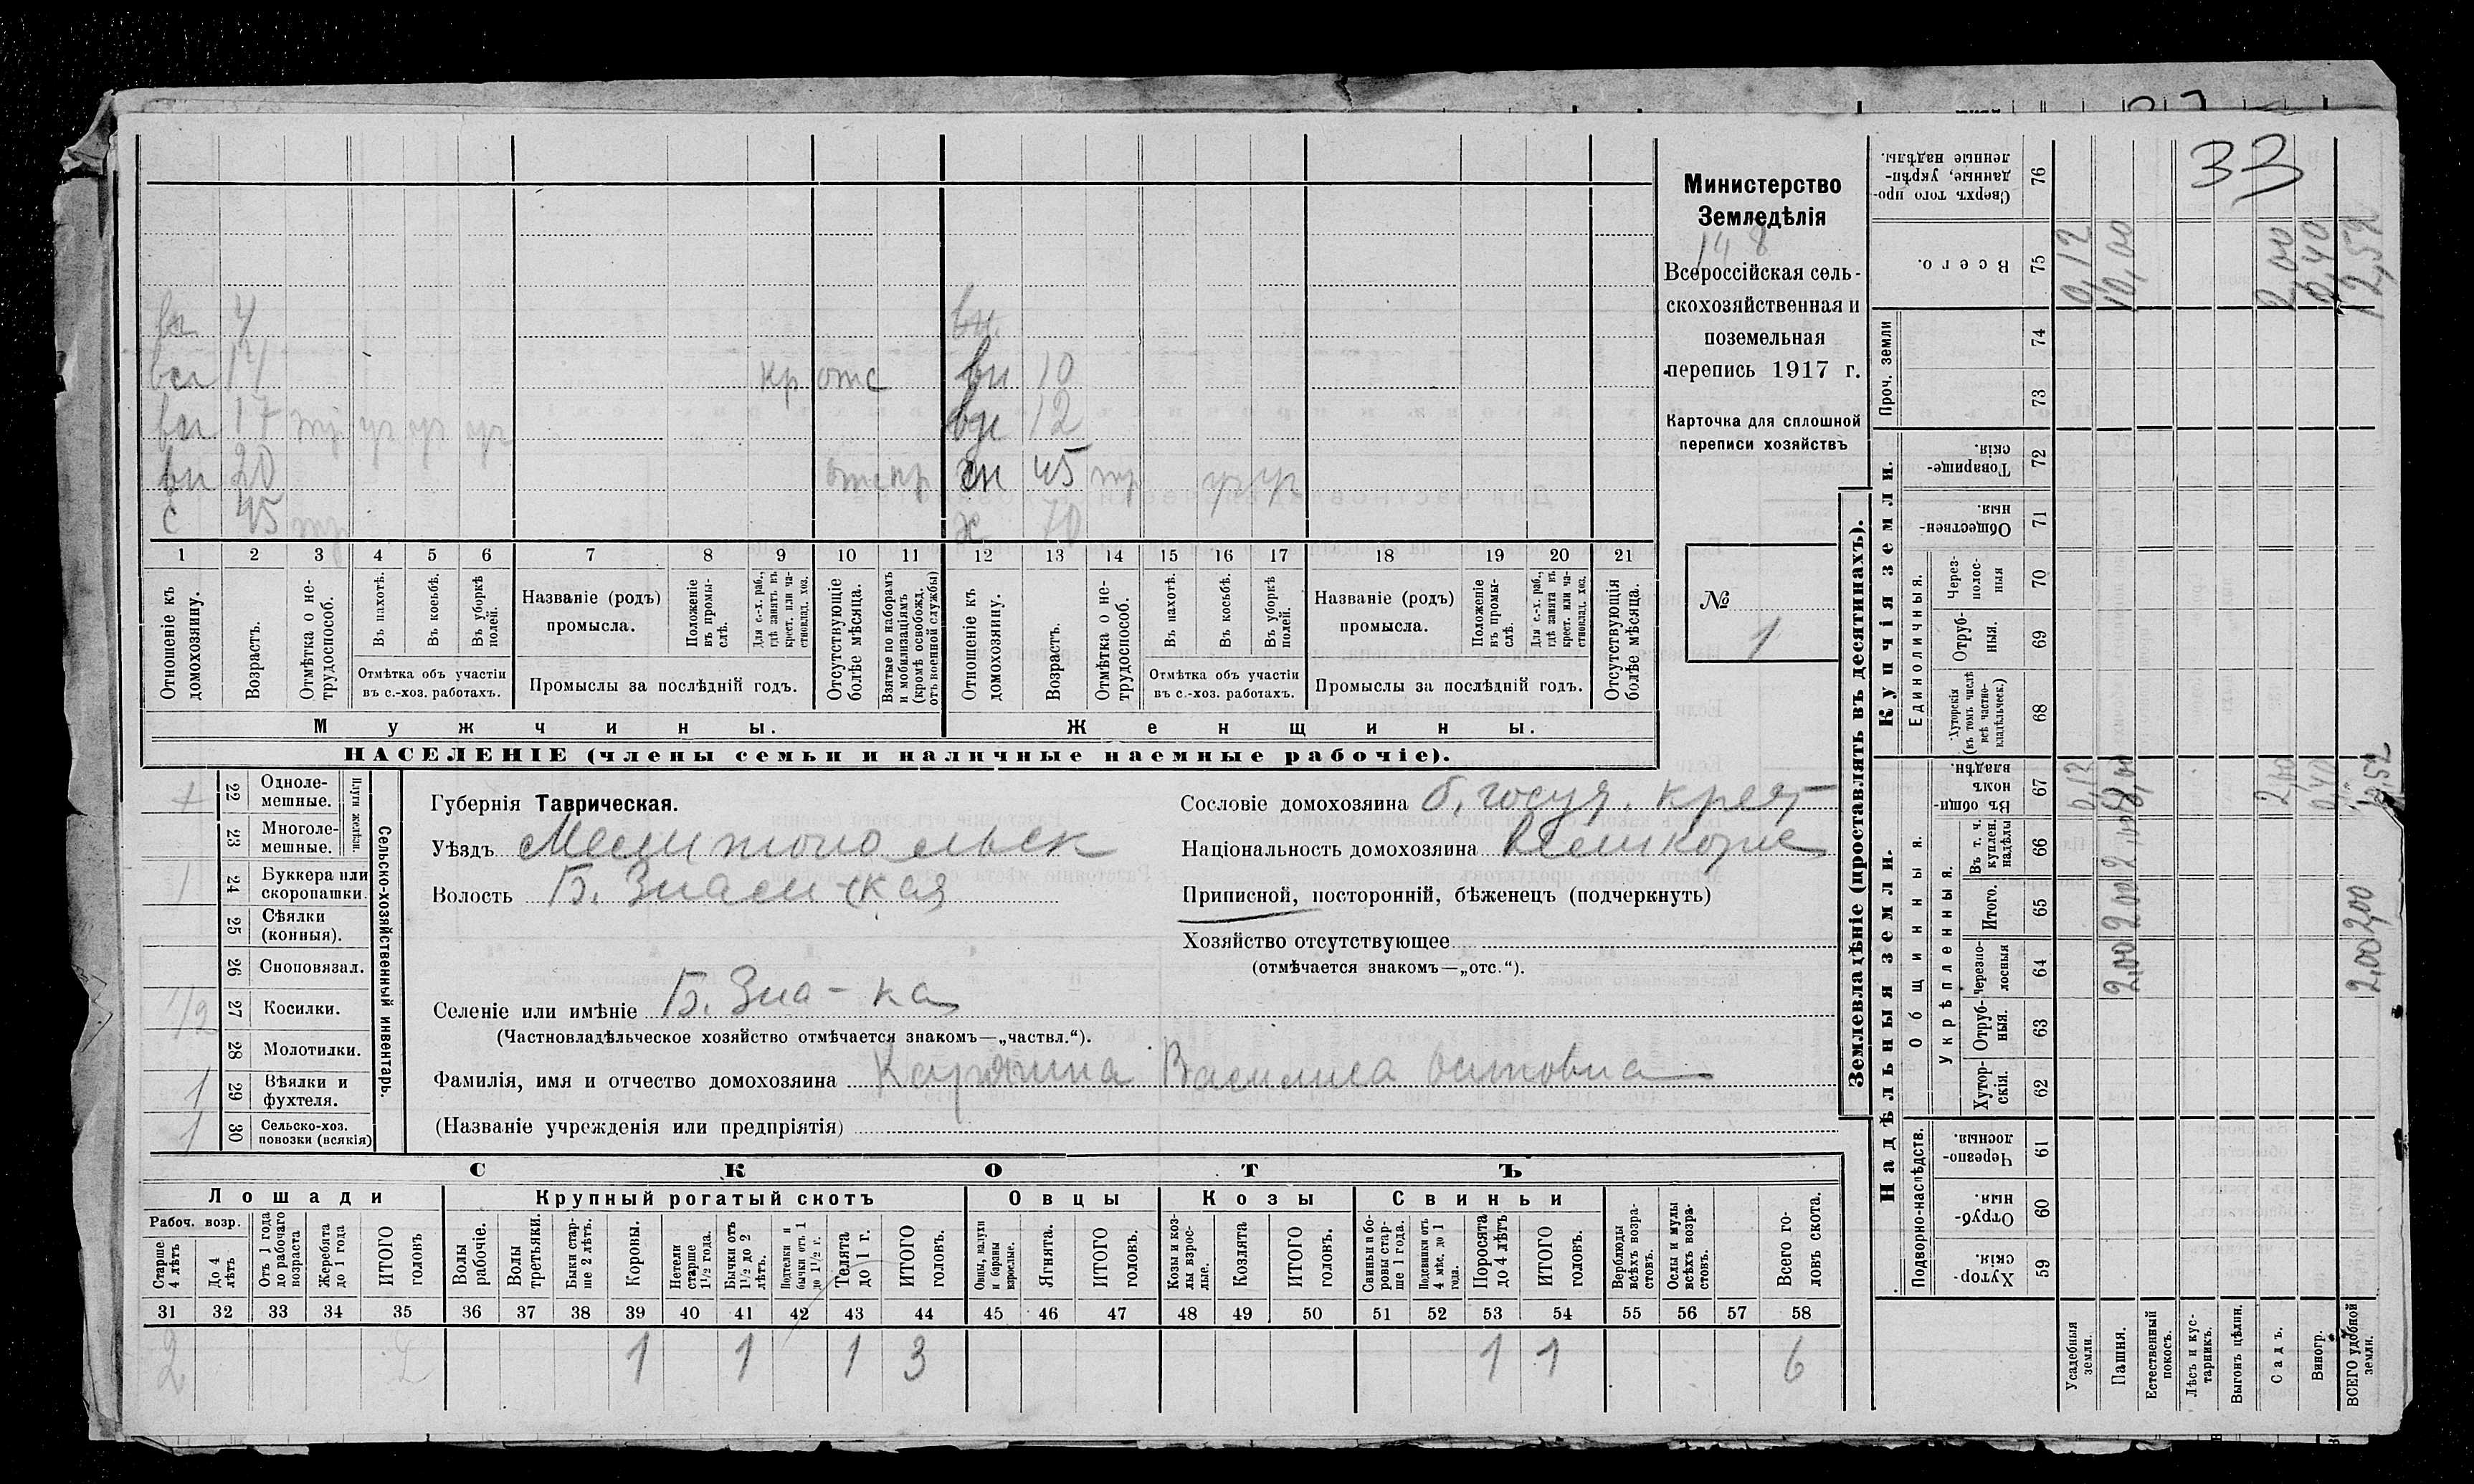 33
Министерство
Земледѣлія
148
Всероссійская сель-
скохозяйственная и
поземельная
перепись 1917 г.
Карточка для сплошной
переписи хозяйствъ
№ 1
4
вн 14 кр отс вн 10
вн 17 тр уч уч уч 12
вн 20 отс кр 45 тр
с 45 тр ж 70
1 2 3 4 5 6 7 8 9 10 11 12 13 14 15 16 17 18 19 20 21
Отношеніе къ домохозяину.
Возрастъ.
Отмѣтка о не-трудоспособ.
Въ пахотѣ.
Въ косьбѣ.
Въ уборкѣ полей.
Отмѣтка объ участіи
въ с.-хоз. работахъ.
Названіе (родъ)
промысла.
Положеніе въ промы-слѣ.
Для с.-х. раб., гдѣ занятъ въ крест. или ча-стновлад. хоз.
Промыслы за послѣдній годъ.
Отсутствующіе болѣе мѣсяца.
Взятые по наборамъ и мобилизаціямъ (кромѣ освобожд. отъ военной службы)
Отношеніе къ домохозяину.
Возрастъ.
Отмѣтка о не-трудоспособ.
Въ пахотѣ.
Въ косьбѣ.
Въ уборкѣ полей.
Отмѣтка объ участіи
въ с.-хоз. работахъ.
Названіе (родъ)
промысла.
Положеніе въ промы-слѣ.
Для с.-х. раб., гдѣ занята въ крест. или ча-стновлад. хоз.
Промыслы за послѣдній годъ.
Отсутствующія болѣе мѣсяца.
Мужчины.
Женщины.
НАСЕЛЕНІЕ (члены семьи и наличные наемные рабочіе).
Сельско-хозяйственный инвентарь.
Плуги желѣзн.
22 Одноле-мешные.
23 Многоле-мешные.
1 24 Буккера или скоропашки.
25 Сѣялки (конныя).
26 Сноповязал.
1/2 27 Косилки.
28 Молотилки.
1 29 Вѣялки и фухтеля.
1 30 Сельско-хоз. повозки (всякія)
Губернія Таврическая.
Уѣздъ Мелитопольск
Волость Б. Знамен-ская
Селеніе или имѣніе Б. Зна-ка
(Частновладѣльческое хозяйство отмѣчается знакомъ—„частвл.“).
Фамилія, имя и отчество домохозяина Василиса
(Названіе учрежденія или предпріятія)
Сословіе домохозяина б. госуд. крест
Національность домохозяина Великорус
Приписной, посторонній, бѣженецъ (подчеркнуть)
Хозяйство отсутствующее
(отмѣчается знакомъ—„отс.“).
СКОТЪ
Лошади
Крупный рогатый скотъ
Овцы
Козы
Свиньи
Рабоч. возр.
Старше 4 лѣтъ
До 4 лѣтъ
Отъ 1 года до рабочаго возраста
Жеребята до 1 года
ИТОГО головъ
Волы рабочіе.
Волы третьяки.
Быки стар-ше 2 лѣтъ.
Коровы.
Нетели старше 1 1/2 года.
Бычки отъ 1 1/2 до 2 лѣтъ.
Подтелки и бычки отъ 1 до 1 1/2 г.
Телята до 1 г.
ИТОГО головъ.
Овцы, валухи и бараны взрослые.
Ягнята.
ИТОГО головъ.
Козы и коз-лы взрос-лые.
Козлята
ИТОГО головъ.
Свиньи и бо-ровы стар-ше 1 года.
Подсвинки отъ 4 мѣс. до 1 года.
Поросята до 4 лѣтъ
ИТОГО головъ.
Верблюды всѣхъ возра-стовъ.
Ослы и мулы всѣхъ возра-стовъ.
Всего го-ловъ скота.
31 32 33 34 35 36 37 38 39 40 41 42 43 44 45 46 47 48 49 50 51 52 53 54 55 56 57 58
2 2 1 1 1 3 1 1 6
Землевладѣніе (проставлять въ десятинахъ).
Надѣльныя земли.
Купчія земли.
Проч. земли
Подворно-наслѣдств.
Общинныя.
Укрѣпленныя.
Единоличныя.
Хутор-скія. 59
Отруб-ныя. 60
Черезпо-лосныя. 61
Хутор-скія. 62
Отруб-ныя. 63
Черезпо-лосныя 64
Итого. 65
Въ т. ч. куплен. надѣлы 66
Въ общин-номъ владѣн. 67
Хуторскія (въ томъ числѣ всѣ частно-владѣльческ.) 68
Отруб-ныя. 69
Через-полос-ныя 70
Обществен-ныя. 71
Товарище-скія. 72
73
74
Всего. 75
Сверхъ того про-данные, укрѣп-ленные надѣлы. 76
Усадебныя земли. 0,12 0,12
Пашня. 2,00 2,00 2,00 8,00 10,00
Естественный покосъ.
Лѣсъ и кус-тарникъ.
Выгонъ цѣлин.
Садъ. 2,00 2,00
Виногр. 0,40 0,40
ВСЕГО удобной земли. 2,00 2,00 12,52